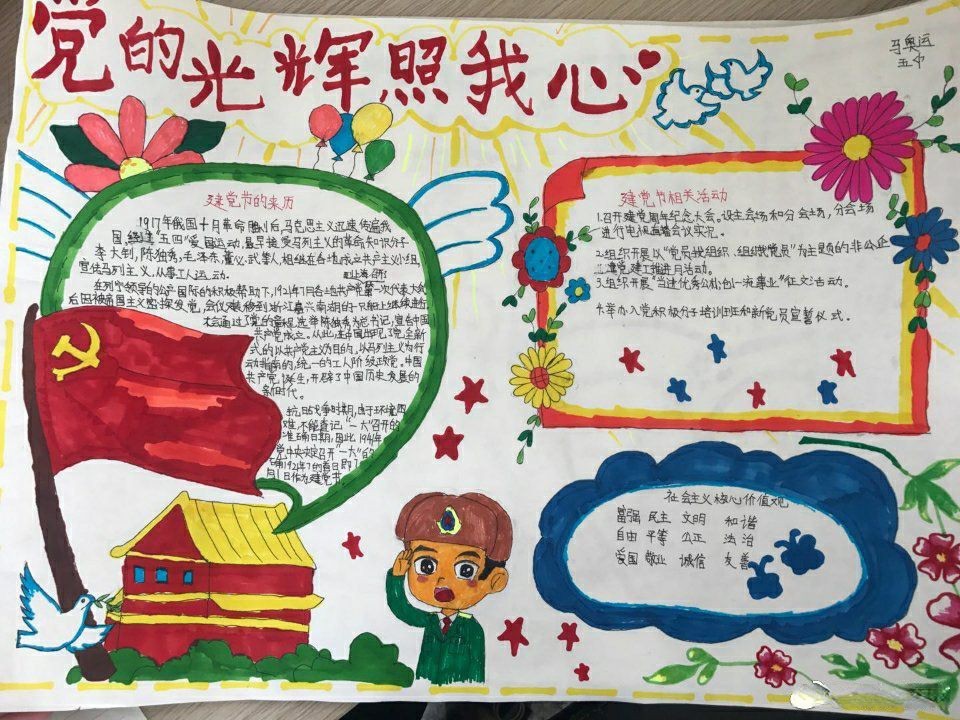 党的光辉照我心
马奥运
五中
建党节的来历
1917年俄国十月革命胜利后,马克思主义迅速传遍我
国,经过“五四”爱国运动,最早接受马列主义的革命知识分子
李大钊,陈独秀,毛泽东,董必武等人,相继在各地成立共产主义小组,
宣传马列主义,从事工人运动。
在列宁领导的共产国际的积极帮助下,1921年7月各地共产党第一次代表大会
后因被帝国主义密探发觉,会议转移到浙江嘉兴南湖的一只船上继续进行
大会通过了党的章程,选举陈独秀为总书记,宣告中国
共产党成立。从此,在中国出现了完全新
式的以共产主义为目的,以马列主义为行
动指南的,统一的工人阶级政党。中国
共产党诞生,开辟了中国历史发展的
新时代。
抗日战争时期,由于环境困
难,不能查记“一大”召开的
准确日期,因此1941年
党中央决定召开“一大”的
月1日作为建党节。
建党节相关活动
1.召开建党周年纪念大会。设主会场和分会场,分会场
进行电视直播会议实况。
2.组织开展以“党员我组织、组织我党员”为主题的非公企
业党建工推进月活动。
3.组织开展“当进优秀公仆创一流事业”征文活动。
4.举办入党积极分子培训班和新党员宣誓仪式。
社会主义核心价值观
富强 民主 文明 和谐
自由 平等 公正 法治
爱国 敬业 诚信 友善